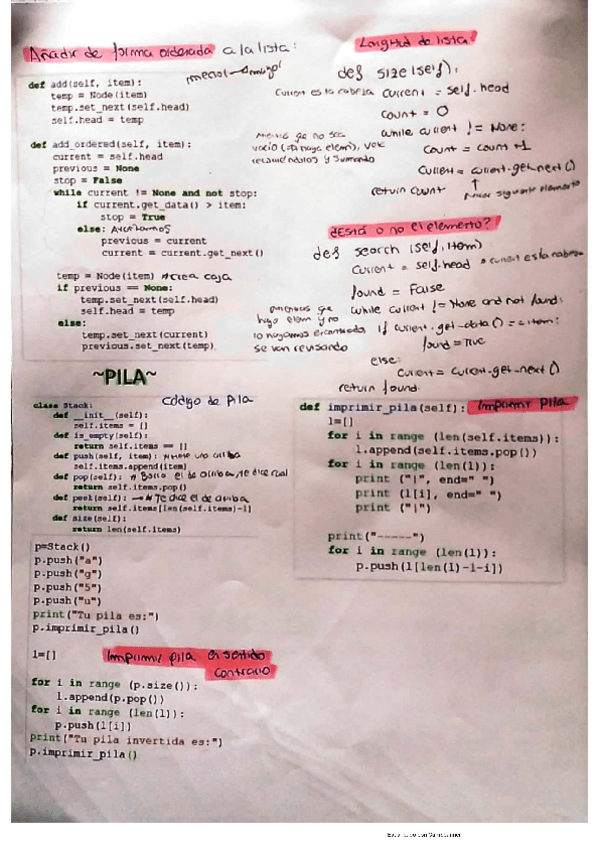 Añadir de forma ordenada a la lista:
menor → mayor
def add(self, item):
temp = Node(item)
temp.set_next(self.head)
self.head = temp
def add_ordered(self, item):
current = self.head
previous = None
stop = False
while current != None and not stop:
if current.get_data() > item:
stop = True
else: Avanzamos
previous = current
current = current.get_next()
temp = Node(item) #crea caja
if previous == None:
temp.set_next(self.head)
self.head = temp
else:
temp.set_next(current)
previous.set_next(temp)
Longitud de lista:
def size(self):
Current es la cabeza current = self.head
count = 0
while current != None:
count = count +1
current = current.get_next()
return count
siguiente elemento
¿Está o no el elemento?
def search (self, item)
current = self.head
found = False
while current != None and not found:
if current.get-data() == item:
found = True
else:
current = current.get_next()
return found
mientras que
haya elem y no
lo hayamos encontrado
se van revisando
~PILA~
código de pila
class Stack:
def __init__(self):
self.items = []
def is_empty(self):
return self.items == []
def push(self, item): #mete uno arriba
self.items.append(item)
def pop(self): # Borra el de arriba, te dice cual
return self.items.pop()
def peek(self): → #Te dice el de arriba
return self.items[len(self.items)-1]
def size(self):
return len(self.items)
p=Stack()
p.push("a")
p.push("g")
p.push("5")
p.push("u")
print("Tu pila es:")
p.imprimir_pila()
l=[]
Imprimir pila en sentido
contrario
for i in range (p.size()):
l.append(p.pop())
for i in range (len(l)):
p.push(l[i])
print("Tu pila invertida es:")
p.imprimir_pila()
def imprimir_pila(self): Imprimir pila
l=[]
for i in range (len(self.items)):
l.append(self.items.pop())
for i in range (len(l)):
print ("|", end=" ")
print (l[i], end=" ")
print ("|")
print("-----")
for i in range (len(l)):
p.push(l[len(l)-1-i])